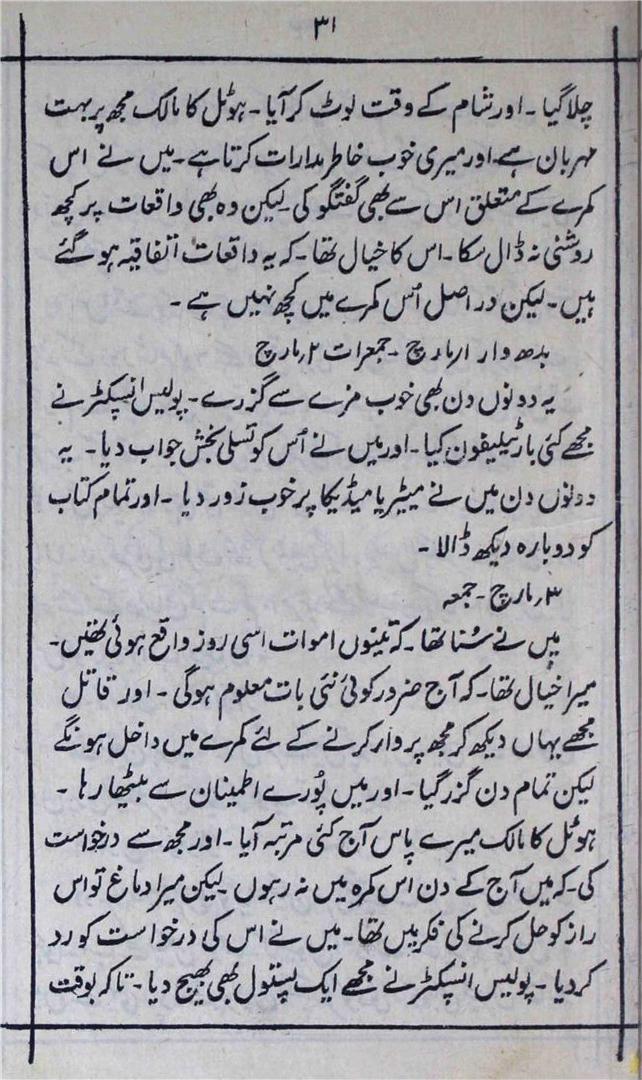 ۳۱
چلا گیا ۔ اور شام کے وقت لوٹ کر آیا ۔ ہوٹل کا مالک مجھ پر بہت
مہربان ہے ۔ اور میری خوب خاطر مدارات کرتا ہے ۔ میں نے اس
کمرے کے متعلق اس سے بھی گفتگو کی لیکن وہ بھی واقعات پر کچھ
روشنی نہ ڈال سکا ۔ اس کا خیال تھا ۔ کہ یہ واقعات اتفاقیہ ہو گئے
ہیں ۔ لیکن در اصل اُس کمرے میں کچھ نہیں ہے ۔
بدھ وار ۱ر مارچ ۔ جمعرات ۲ر مارچ
یہ دونوں دن بھی خوب مزے سے گزرے ۔ پولیس انسپکٹر نے
مجھے کئی بار ٹیلیفون کیا ۔ اور میں نے اُس کو تسلی بخش جواب دیا ۔ یہ
دونوں دن میں نے میٹیریا میڈیکا پر خوب زور دیا ۔ اور تمام کتاب
کو دوبارہ دیکھ ڈالا ۔
۳ر مارچ ۔ جمعہ
میں نے سُنا تھا ۔ کہ تینوں اموات اسی روز واقع ہوئی تھیں ۔
میرا خیال تھا ۔ کہ آج ضرور کوئی نئی بات معلوم ہوگی ۔ اور قاتل
مجھے یہاں دیکھ کر مجھ پر وار کرنے کے لئے کمرے میں داخل ہونگے
لیکن تمام دن گزر گیا ۔ اور میں پُورے اطمینان سے بیٹھا رہا ۔
ہوٹل کا مالک میرے پاس آج کئی مرتبہ آیا ۔ اور مجھ سے درخواست
کی ۔ کہ میں آج کے دن اس کمرہ میں نہ رہوں لیکن میرا دماغ تو اس
راز کو حل کرنے کی فکر میں تھا ۔ میں نے اس کی درخواست کو رد
کر دیا ۔ پولیس انسپکٹر نے مجھے ایک پستول بھی بھیج دیا ۔ تاکہ بوقت